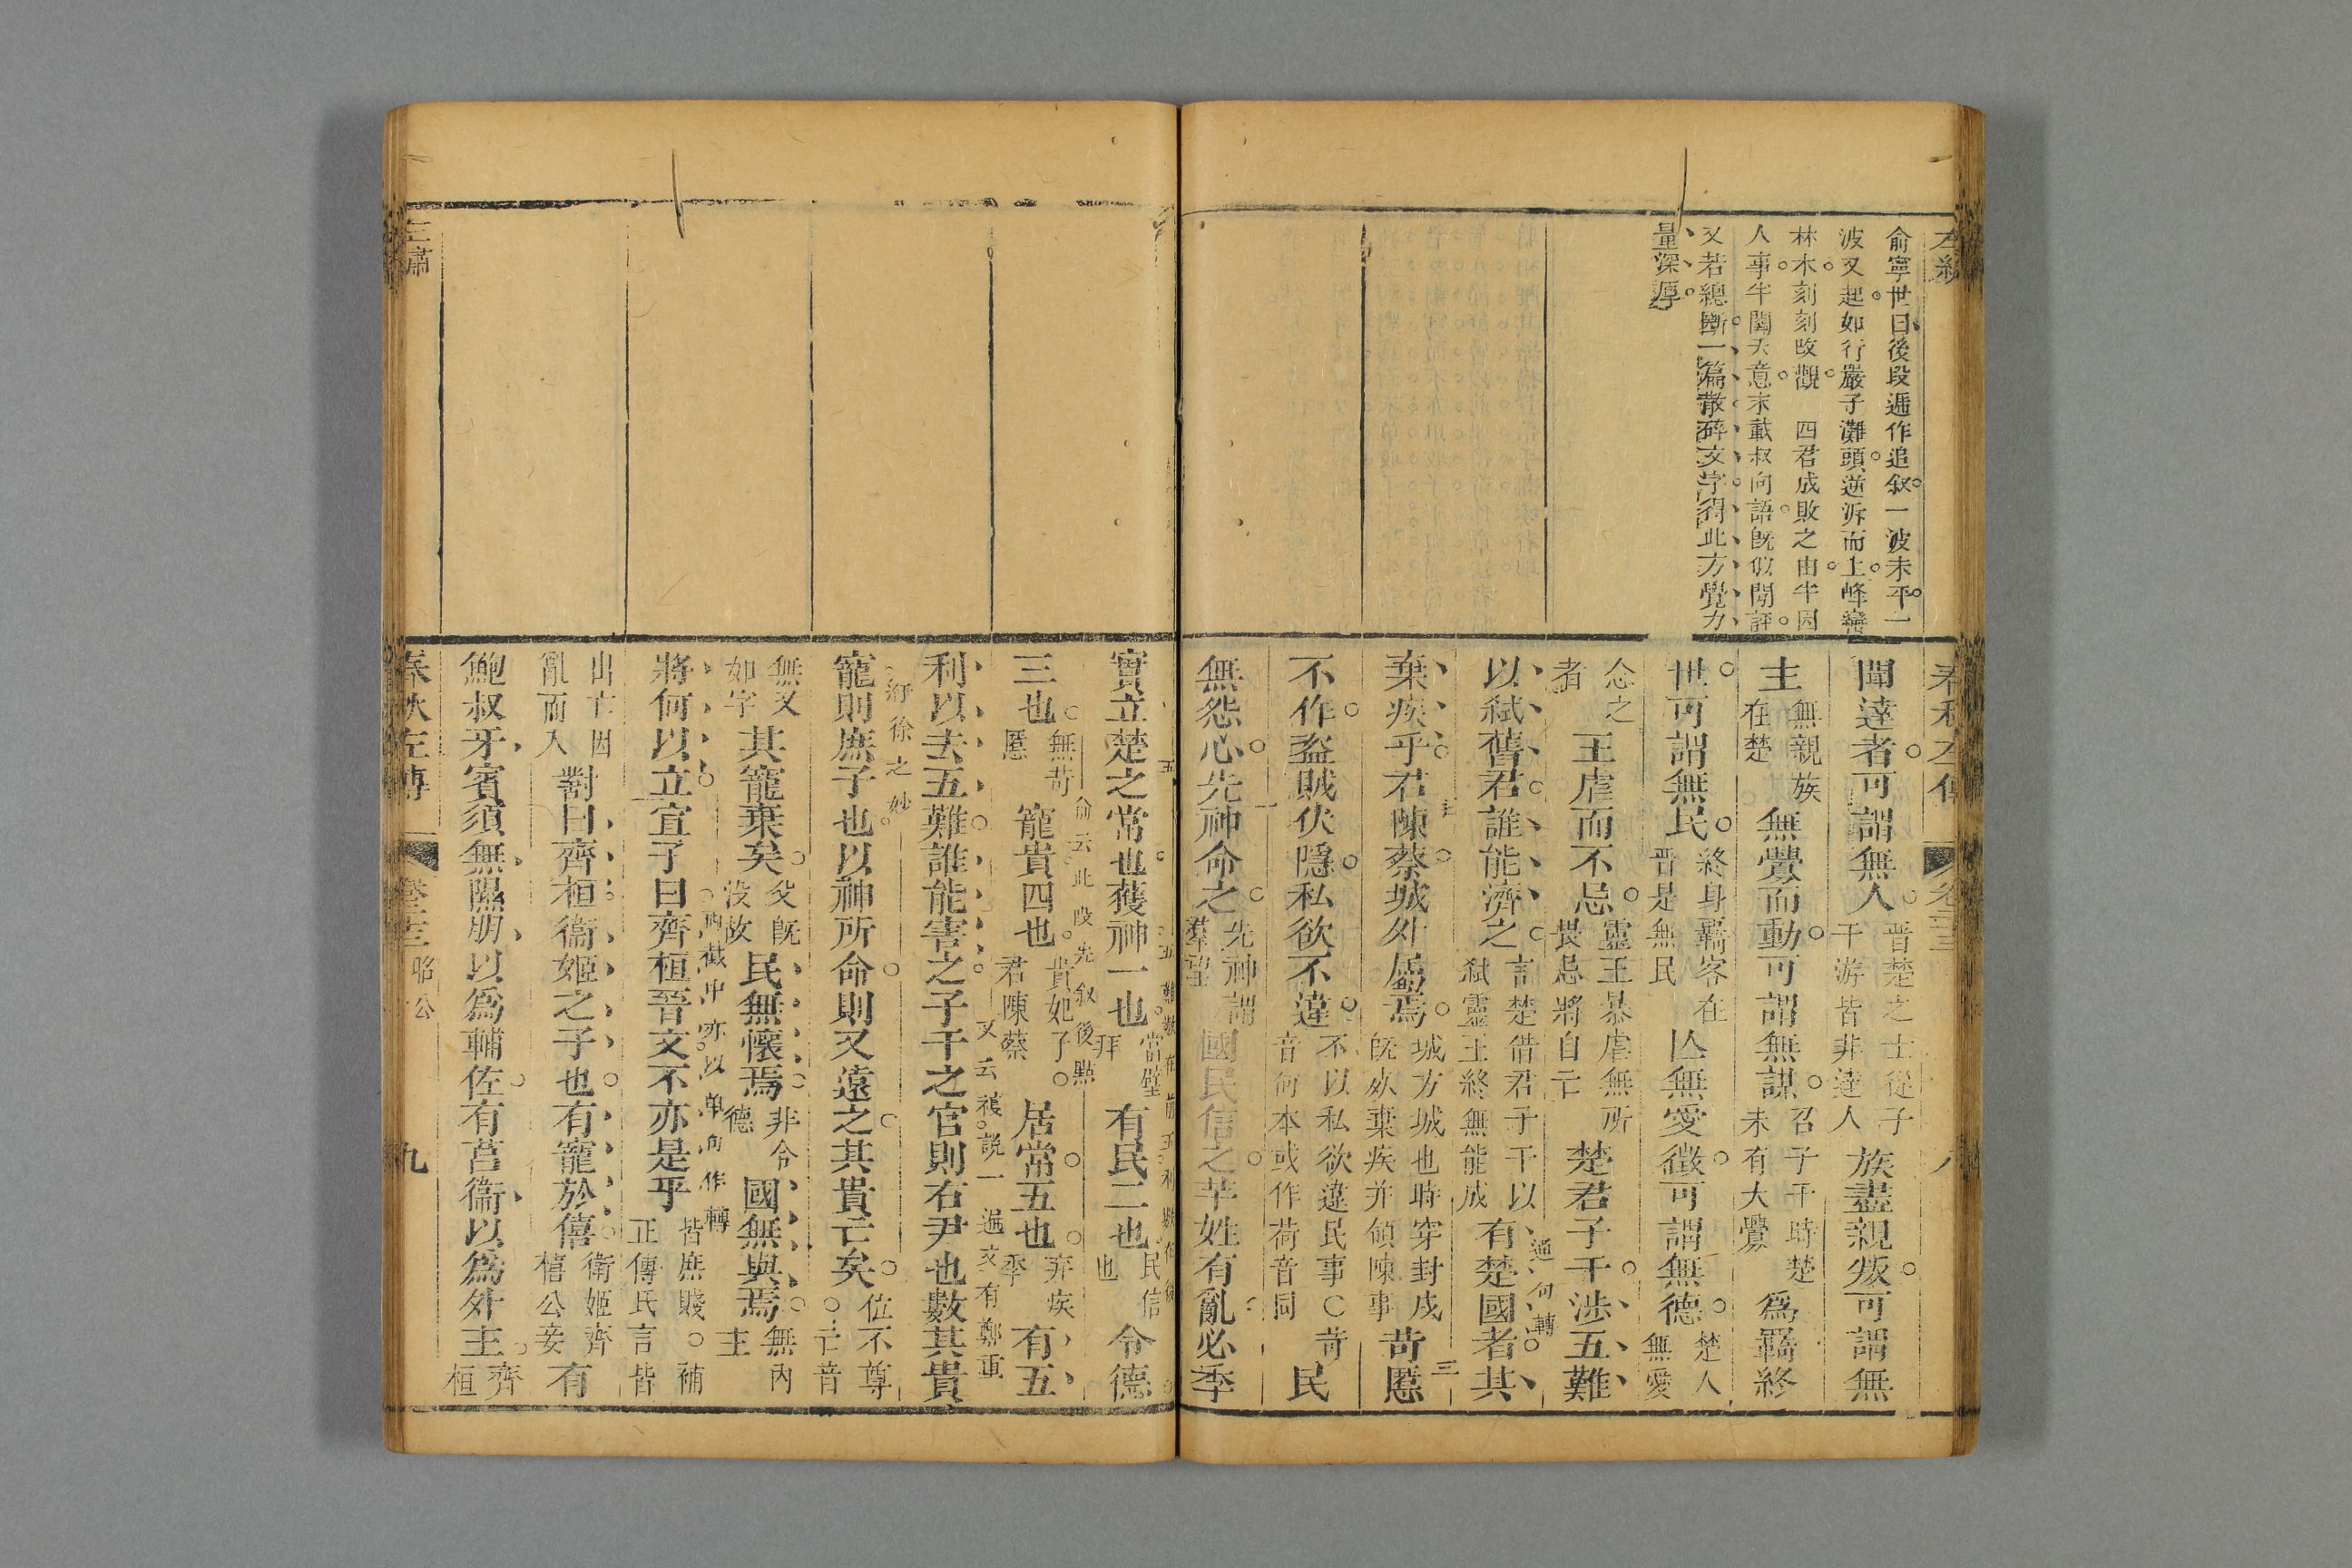 俞寧世曰後段遞作追叙一波未平一
波又起如行嚴子灘頭逆泝而上峰巒
林木刻刻改觀　四君成敗之由半因
人事半關天意末載叔向語既似閒評
又若總斷一篇散碎文字得此方覺力
量深厚
春秋左傳　卷二十三　八
聞達者可謂無人晉楚之士從子干游皆非達人族盡親叛可謂無
主無親族在楚無釁而動可謂無謀召子干時楚未有大釁為羈終
世可謂無民終身羈客在晋是無民亾無愛徵可謂無德楚人無愛
念之者王虐而不忌靈王暴虐無所畏忌將自亡楚君子干涉五難
以弑舊君誰能濟之言楚借君子干以弑靈王終無能成有楚國者其
通何轉
棄疾乎君陳蔡城外屬焉城方城也時穿封戍既放棄疾并領陳事苛慝
不作盜賊伏隱私欲不違不以私欲違民事○苛音何本或作荷音同民
無怨心先神命之先神謂羣望國民信之芈姓有亂必季
實立楚之常也獲神一也當璧拜有民二也民信也令德
三也無苛慝寵貴四也貴妃子君陳蔡居常五也弃疾季有五
俞云此段先叙後點
利以去五難誰能害之子干之官則右尹也數其貴
又云複說一遍文有鄭重
紆徐之妙
寵則庶子也以神所命則又遠之其貴亡矣位不尊○亡音
無又如字其寵棄矣父既没故民無懷焉非令德國無與焉無內主
將何以立宣子曰齊桓晉文不亦是乎皆庶賤○補正傳氏言皆
兩截中亦以單句作轉
出亡因亂而入對曰齊桓衞姬之子也有寵於僖衛姬齊僖公妾有
鮑叔牙賓須無隰朋以為輔佐有莒衞以為外主齊桓
春秋左傳　卷二十三　昭公　九